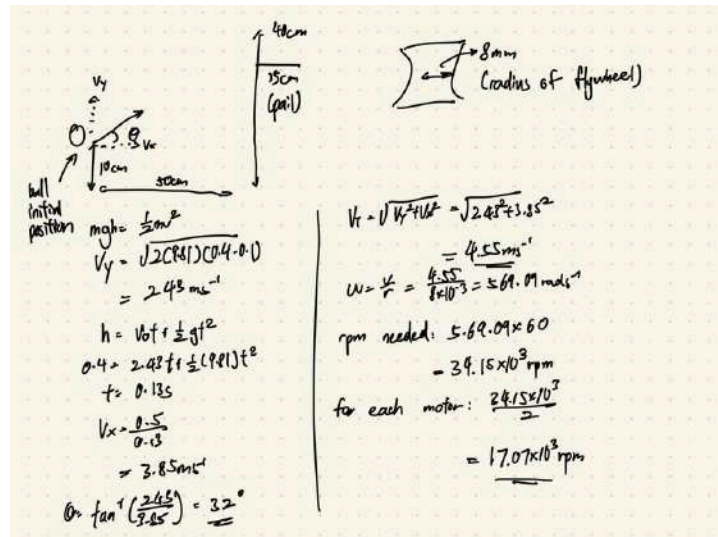 40cm
15cm
(pail)
Vy
θ
Vx
10cm
50cm
ball
initial
position
8mm
(radius of flywheel)
mgh = ½mv²
Vy = √2(9.81)(0.4-0.1)
= 2.43 ms⁻¹
h = V₀t + ½gt²
0.4 = 2.43t + ½(9.81)t²
t = 0.13s
Vx = 0.5/0.13
= 3.85ms⁻¹
θ = tan⁻¹(2.43/3.85) = 32°
Vr = √Vy²+Vx² = √2.43²+3.85²
= 4.55ms⁻¹
ω = v/r = 4.55/8×10⁻³ = 569.09 rads⁻¹
rpm needed: 5.69.09×60
= 34.15×10³ rpm
for each motor: 34.15×10³/2
= 17.07×10³ rpm